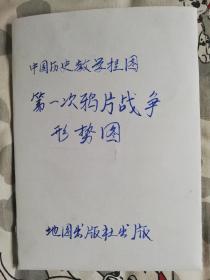 中国历史教学挂图
第一次鸦片战争
形势图
地图出版社出版